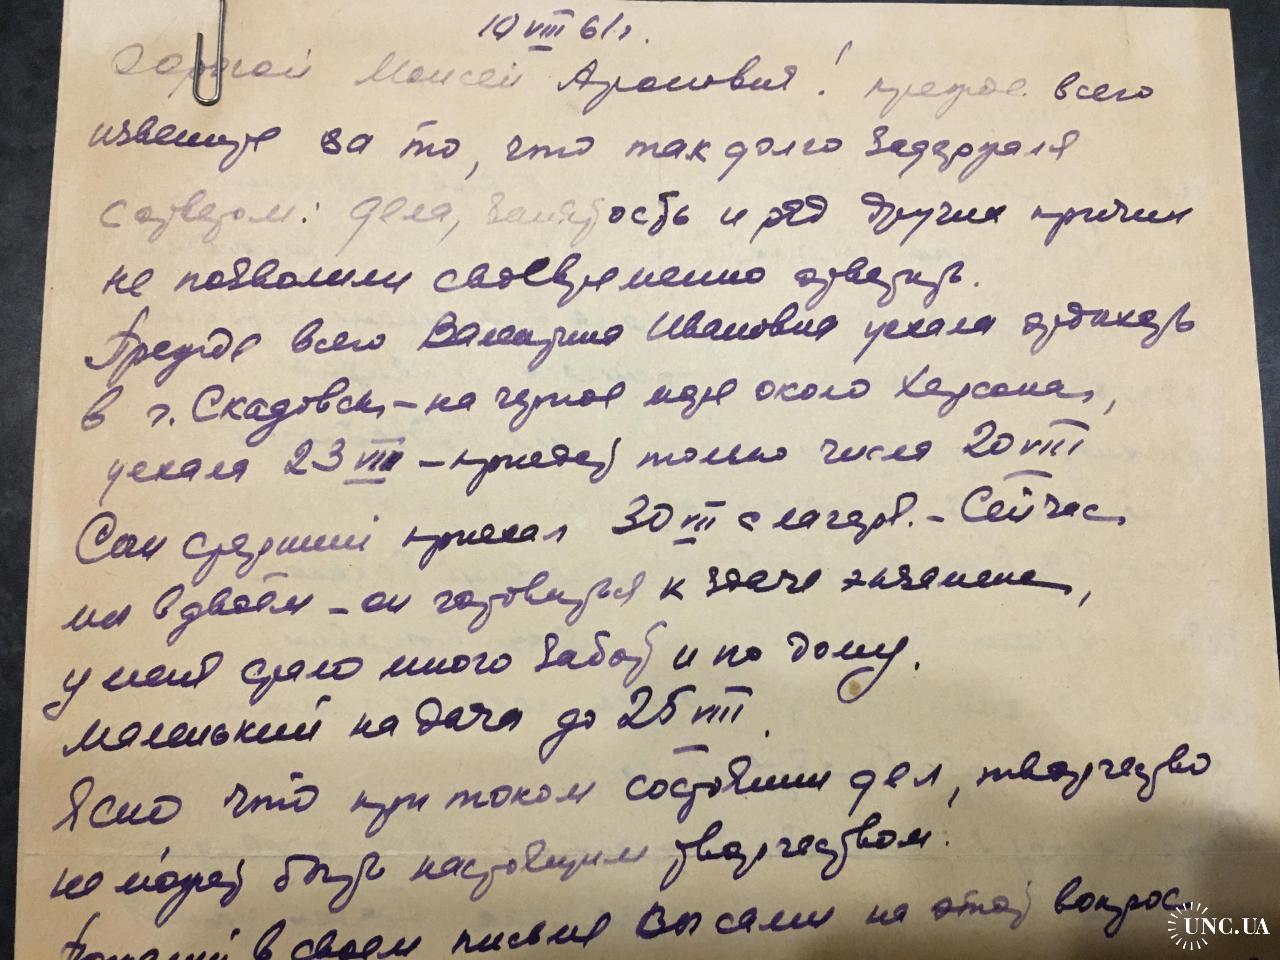 10 VIII 61 г.
Дорогой Моисей Аронович! прежде всего
извените за то, что так долго задержался
с ответом: дела, занятость и ряд других причин
не позволили своевременно ответить.
Прежде всего Валентина Ивановна уехала отдыхать
в г. Скадовск, – на черное море около Херсона,
уехала 23 VII – приедет только числа 20 VIII
Сын средний приехал 30 VII с лагеря. – Сейчас
мы вдвоем – он готовиться к здаче экзамена,
у меня стало много забот и по дому.
маленький на даче до 25 VIII.
Ясно что при таком состоянии дел, творчество
не может быть настоящим творчеством.
в своем письме Вы сами на этот вопрос
UNC.UA